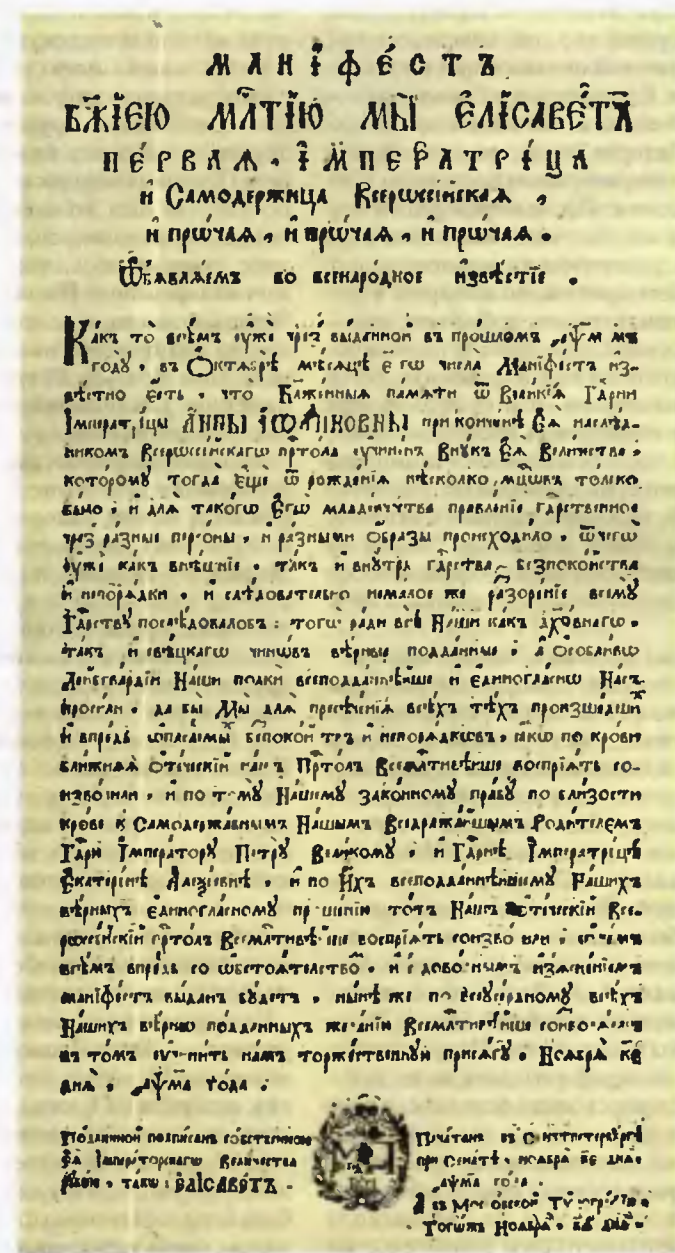 МАНІФЕ́СТЪ
БЖ҃ІЕЮ МЛ҃ТІЮ МЫ̀ ЕЛІСАВЕ́ТА
ПЕ́РВАѦ, ІМПЕРАТРІ́ЦА
и҆ Самоде́ржица Всерѡссі́йскаѧ,
и҆ прѡ́чаѧ, и҆ прѡ́чаѧ, и҆ прѡ́чаѧ.
Ѡ҆б̾ѧвлѧ́емъ во всенаро́дное и҆звѣ́стїе.
Ка́къ то̀ всѣ́мъ ᲂу҆жѐ чрез̾ вы́данной въ про́шломъ ҂аѱ҃м мъ
году̀, въ Октѧбрѣ̀ мѣ́сѧцѣ е҃ гѡ числа̀ Манїфе́стъ и҆з-
вѣ́стно е҆́сть, что̀ Блаже́нныѧ па́мѧти ѿ Вели́кїѧ Гдⷭ҇рни
І҆мператрі́цы А҆́ННЫ І҆ѠА́ННОВНЫ при кончи́нѣ Е҆ѧ̀ наслѣ́д-
никомъ Всерѡссі́йскагѡ прⷭ҇то́ла ᲂу҆чине́нъ Вну́къ Е҆ѧ̀ Вели́чества,
кото́рому тогда̀ е҆щѐ ѿ рожде́нїѧ нѣ́сколко мцⷭ҇ѡвъ то́лко
бы́ло, и҆ длѧ̀ тако́гѡ Е҆гѡ̀ младе́нчества правле́нїе гдⷭ҇рственное
чрез̾ ра́зные персо́ны, и҆ ра́зными ѻ҆́бразы происходи́ло, ѿ чегѡ̀
ᲂу҆жѐ как̾ внѣ́шнїе, та́къ и҆ внꙋтрь гдⷭ҇рства безпоко́йства
и҆ непорѧ́дки, и҆ слѣ́довательно нема́лое же разоре́нїе всемꙋ̀
Гдⷭ҇рствꙋ послѣ́довалобъ: тогѡ̀ ра́ди всѣ̀ На́ши как̾ дх҃о́внагѡ,
та́къ и҆ свѣ́цкагѡ чинѡ́въ вѣ́рные по́дданные, а҆ ѻ҆со́бливѡ
Лейбгва́рдїи На́ши полкѝ всеподда́ннѣйше и҆ е҆диногла́снѡ На́съ
проси́ли, да бы̀ Мы̀ длѧ̀ пресѣче́нїѧ всѣ́хъ тѣ́хъ произше́дших
и҆ впре́дь ѡ҆пасаемых безпоко́йствъ и҆ непорѧ́дкѡвъ, ꙗ҆́кѡ по кро́ви
бли́жнѧѧ ѻ҆те́ческїй на́шъ Прⷭ҇то́лъ Всемлⷭ҇тивѣ́йше воспрїѧ́ть со-
изво́лили, и҆ по томꙋ̀ На́шемꙋ зако́нномꙋ пра́вꙋ по бли́зости
кро́ве к Самодержа́внымъ На́шымъ Вседража́йшымъ Роди́телемъ
Гдⷭ҇рю І҆мпера́торꙋ Петрꙋ̀ Вели́комꙋ, и҆ Гдⷭ҇рнѣ І҆мператрі́цѣ
Е҆катери́нѣ А҆леѯі́евнѣ, и҆ по И҆́хъ всеподда́ннѣйшемꙋ На́шихъ
вѣ́рныхъ е҆диногла́сномꙋ проше́нїю то́тъ На́шъ ѻ҆те́ческїй Все-
рѡссі́йскїй прⷭ҇то́лъ Всемлⷭ҇тивѣ́йше воспрїѧ́ть соизво́лили, ѡ҆ че́мъ
всѣ́мъ впре́дь со ѡ҆бстоѧ́телством, и҆ з̾ дово́лнымъ и҆з̾ѧсне́нїемъ
манїфе́стъ вы́данъ бꙋ́детъ, ны́нѣ же по всеᲂусе́рдномꙋ всѣ́хъ
На́шихъ вѣ́рнѡ по́дданныхъ жела́нїю Всемлⷭ҇тивѣ́йше соизволѧ́емъ
въ то́мъ ᲂу҆чини́ть на́мъ торже́ственнꙋю присѧ́гꙋ. Ноѧ́брѧ к҃е
днѧ̀, ҂аѱ҃ма го́да.
По́длинной подпи́санъ со́бственною
Е҆ѧ̀ І҆мпера́торскагѡ Вели́чества
рꙋко́ю, та́кѡ: ЕЛІСАВЕ́ТЪ.
Печа́танъ въ Санктпетербꙋ́ргѣ
при Сена́тѣ, ноѧ́брѧ к҃е днѧ̀,
҂аѱ҃ма го́да.
А҆ въ Моско́вской Тѷпогра́фїи
тогѡ́жъ Ноѧ́брѧ, днѧ̀.